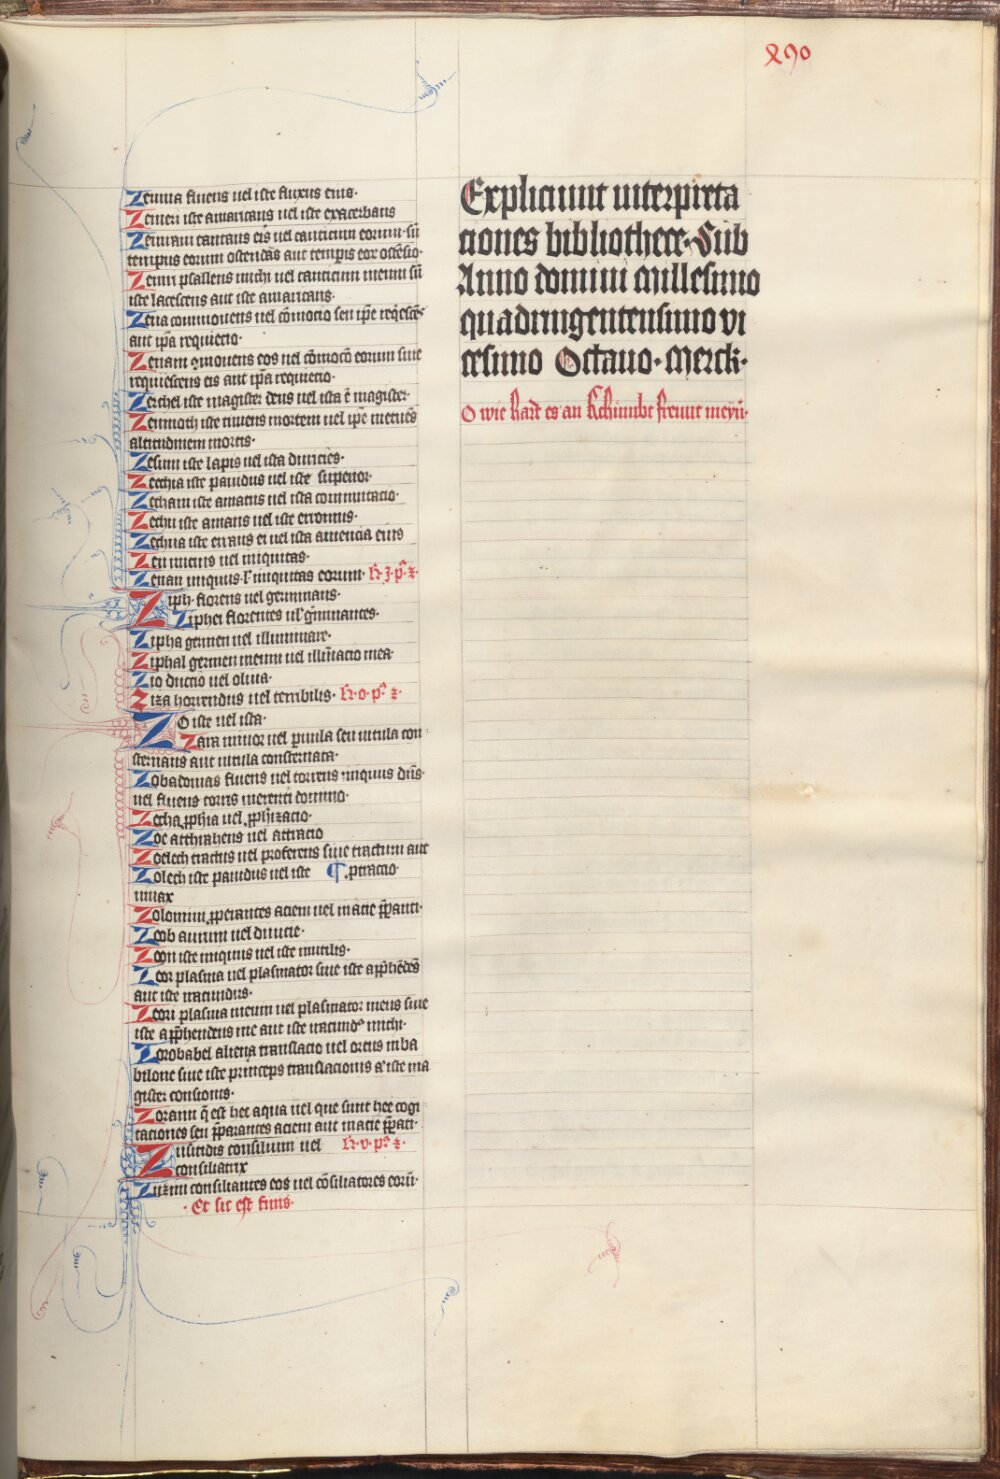 Zemma fluens uel iste fluxus eius·
Zemeri iste amaricans uel iste exacerbans
Zemram cantans eis uel canticum eorum sū
tempus eorum ostendās aut temp̄is eor̄ ostēsio·
Zemri psallens michi uel canticum meum sū
iste lacescens aut iste amaricans·
Zena commouens uel cōmotio seu ip̄e
aut ip̄a requietio·
Zenam uel cōmocō eorum siue
requiescens eis aut ip̄a requietio·
Zerchel iste magister deus uel ista ē magister·
Zermoth iste mortem uel ip̄e
altitudinem mortis·
Zesum iste lapis uel ista duricies·
Zechia iste pauidus uel iste superior·
Zecham iste amatus uel ista commutacio·
Zechu iste amans uel iste
Zechua iste errans ei uel ista amencia eius
Zeu uel iniquitas·
Zenan iniquus·l' iniquitas eorum·
Ziph· florens uel germinans·
Ziphei florentes ul' ḡminantes·
Zipha germen uel illuminare·
Ziphal germen meum uel illūiacio mea·
Zio ductio uel oliua·
Ziza horrendus uel terribilis·
Zo iste uel ista·
Zara minor uel paruula seu uitula con
sternans aut uitula consternata·
Zobadonias fluens uel torrens iniquus dn̄s·
uel fluens torris merenti domino·
Zecha pp̄hia uel pp̄hizacio·
Zoe atthrahens uel attracio
Zoelech tractus uel proferens siue tractum aut
Zolech iste pauidus uel iste ¶ ptractio
minax
Zolomim pperantes aciem uel in acie pp̄anti·
Zoob aurum uel diuicie·
Zoon iste iniquus uel iste inutilis·
Zoor plasma uel plasmator siue iste app̄hēdēs
aut iste iracundus·
Zoori plasma meum uel plasmator meus siue
iste app̄hendens me aut iste iracund⁹ michi·
Zorobabel aliena translacio uel ortus in ba
bilone siue iste princeps translacionis a' iste ma
gister confionis·
Zoram q̄ est hec aqua uel que sunt hee cogi
taciones seu pp̄arantes aciem aut in acie pp̄ati·
consilium uel
consiliatrix
Zuzim consiliantes eos uel cōsiliatores eorū·
· Et sic est finis·
Expliciunt interpreta
ciones bibliothece· Sub
Anno domini Millesimo
quadringentensimo vi
cesimo Octauo· Merck·
O wie hart es an Kchumbt frewnt meyn·